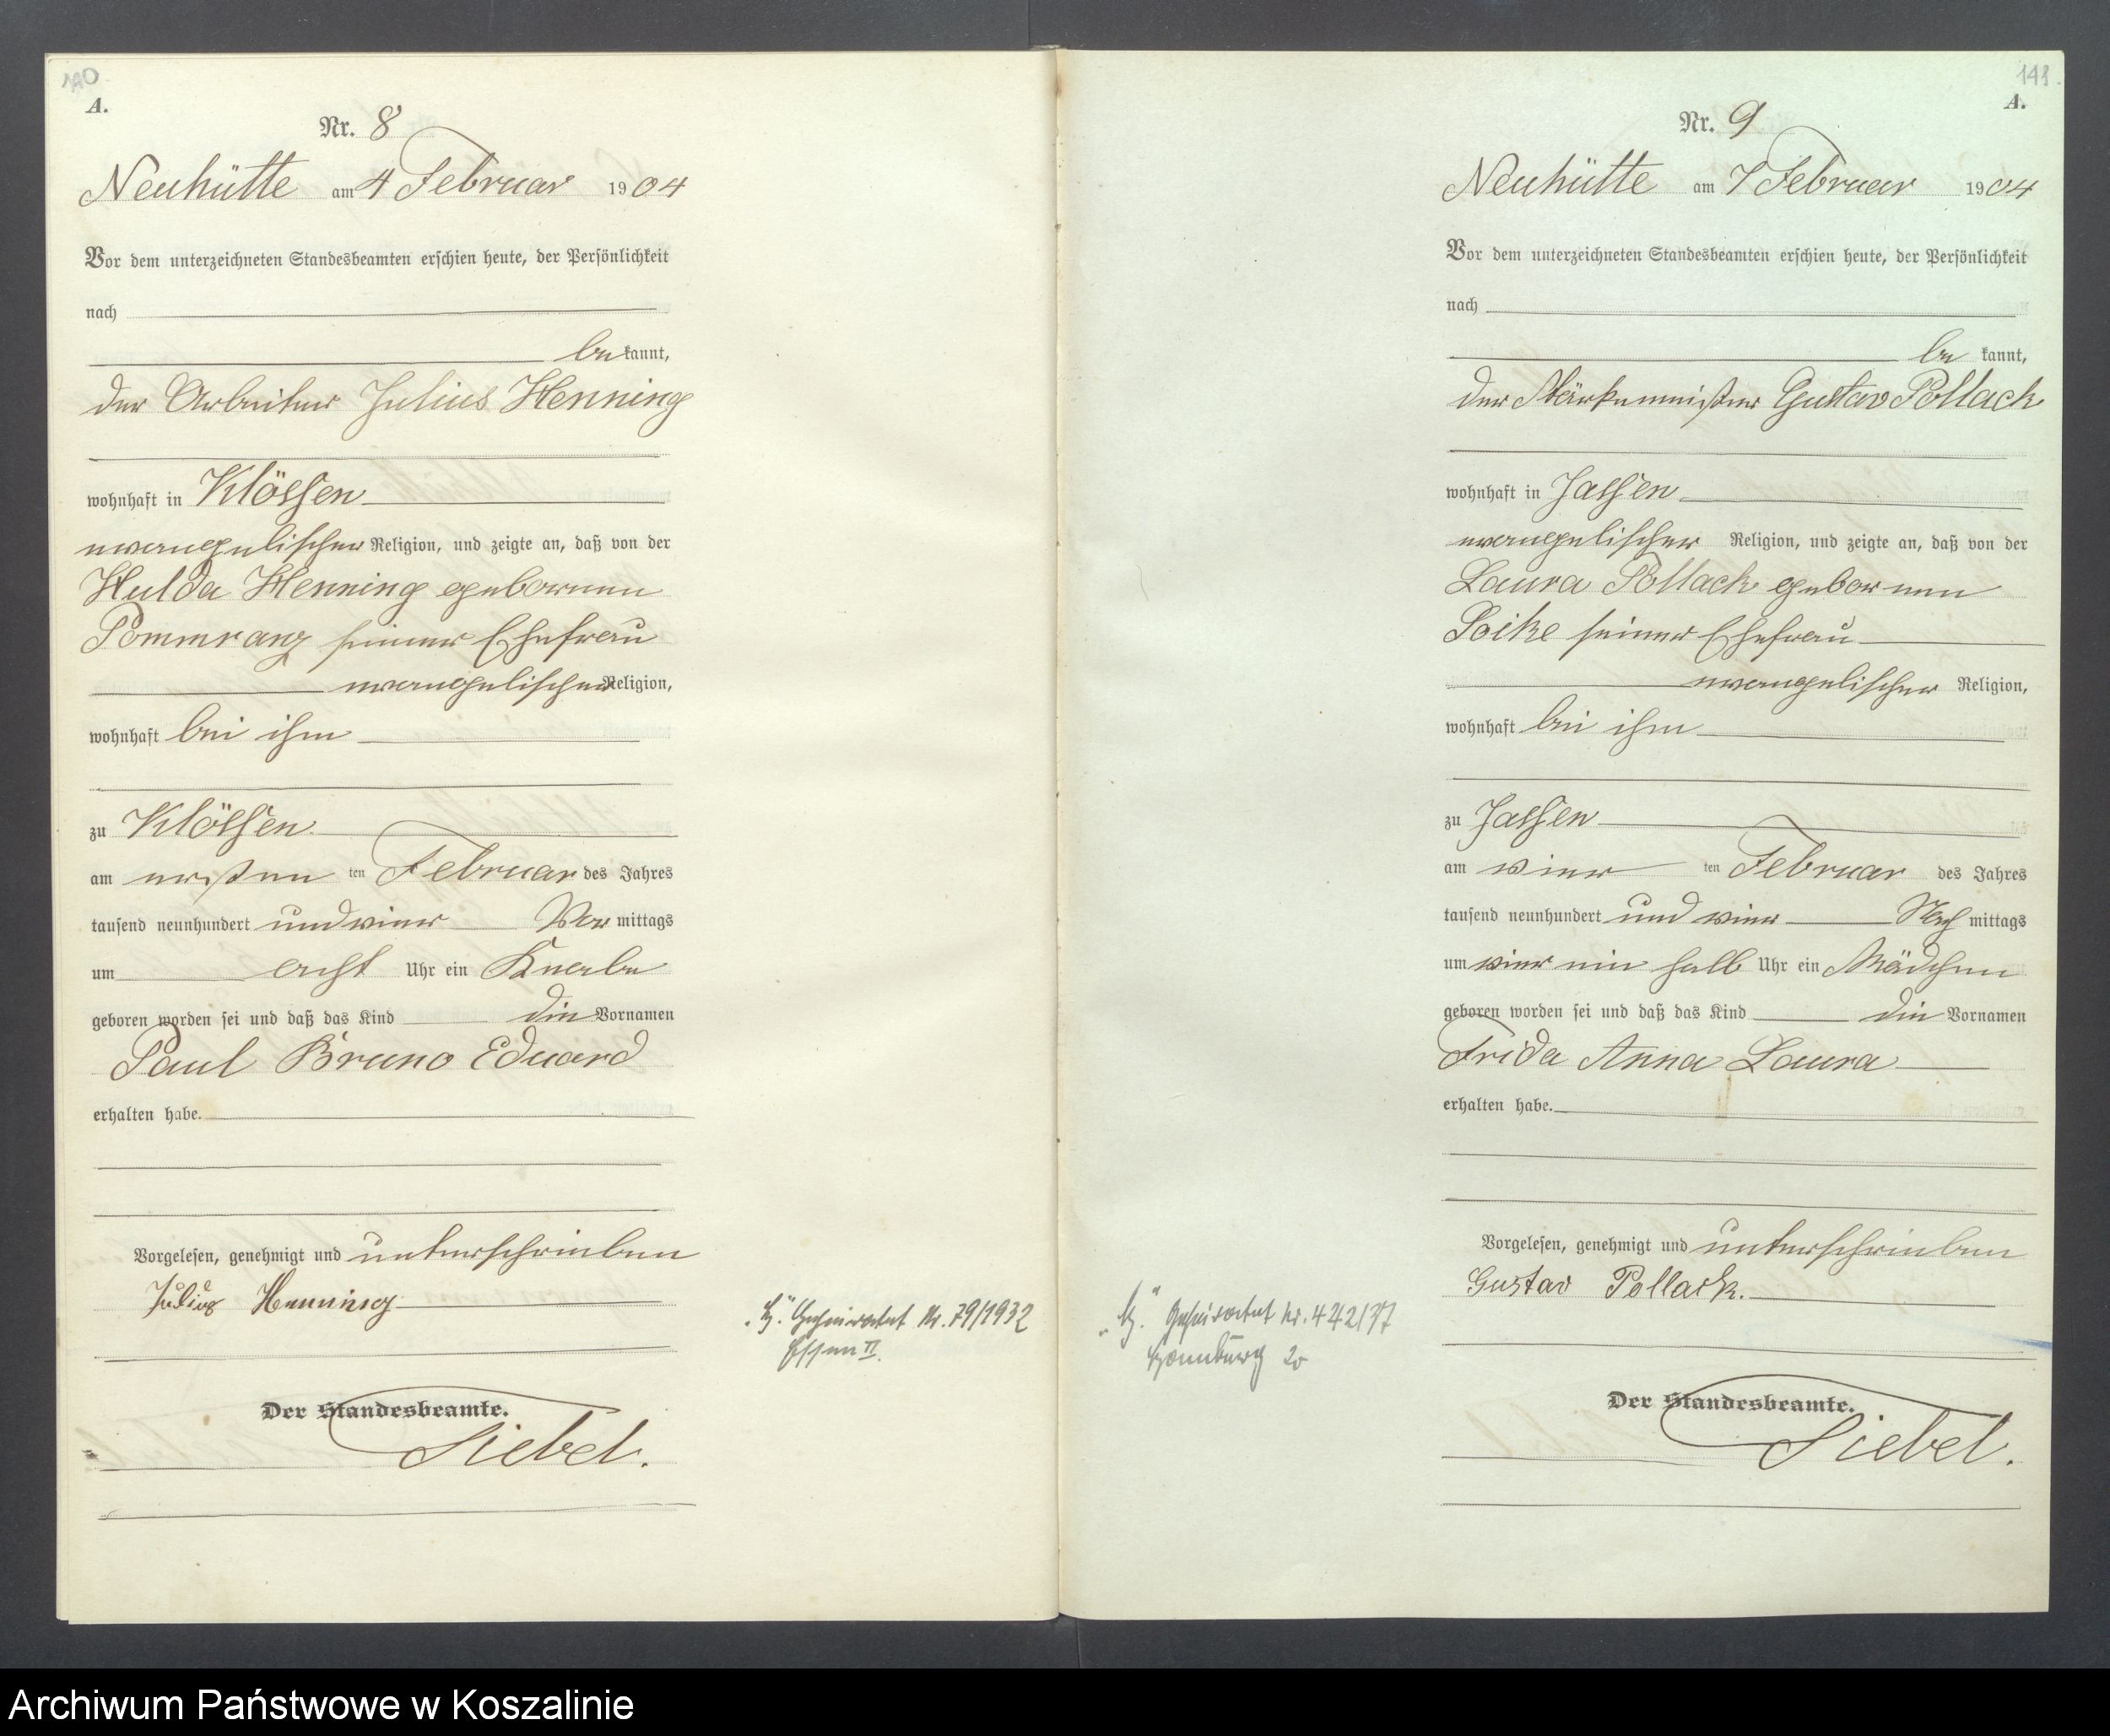 140
A.
Nr. 8
Neuhütte am 4 Februar 1904
Vor dem unterzeichneten Standesbeamten erschien heute, der Persönlichkeit
nach
be kannt,
der Arbeiter Julius Henning
wohnhaft in Klössen
evangelischer Religion, und zeigte an, daß von der
Hulda Henning geborenen
Pommranz seiner Ehefrau
evangelischer Religion,
wohnhaft bei ihm
zu Klössen
am ersten ten Februar des Jahres
tausend neunhundert und vier Vor mittags
um acht Uhr ein Knabe
geboren worden sei und daß das Kind die Vornamen
Paul Bruno Eduard
erhalten habe.
Vorgelesen, genehmigt und unterschrieben
Julius Henning
Der Standesbeamte.
Siebel.
„H." Geheiratet Nr. 79/1932
Essen II.
141.
A.
Nr. 9
Neuhütte am 7 Februar 1904
Vor dem unterzeichneten Standesbeamten erschien heute, der Persönlichkeit
nach
be kannt,
der Stärkemeister Gustav Pollack
wohnhaft in Jassen
evangelischer Religion, und zeigte an, daß von der
Laura Pollack geborenen
Loike seiner Ehefrau
evangelischer Religion,
wohnhaft bei ihm
zu Jassen
am vier ten Februar des Jahres
tausend neunhundert und vier Nach mittags
um vier ein halb Uhr ein Mädchen
geboren worden sei und daß das Kind die Vornamen
Frida Anna Laura
erhalten habe.
Vorgelesen, genehmigt und unterschrieben
Gustav Pollack.
Der Standesbeamte.
Siebel.
„H." Geheiratet Nr. 442/37
Hamburg 20
Archiwum Państwowe w Koszalinie